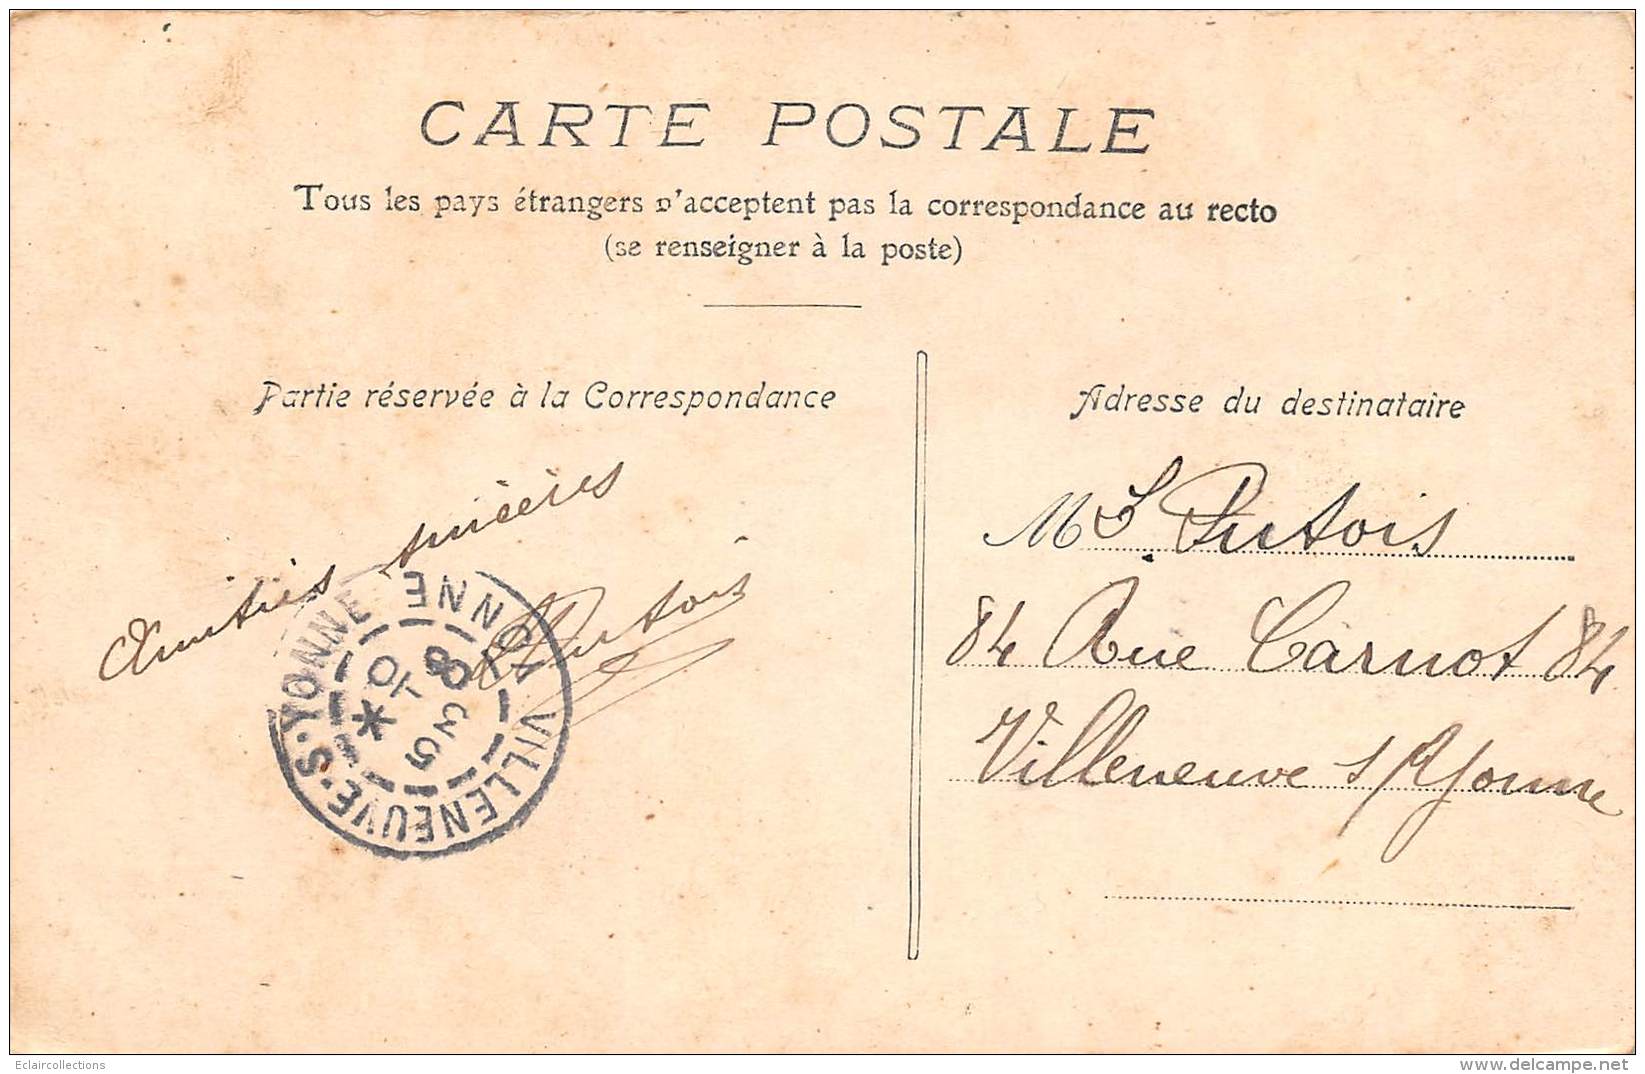 CARTE POSTALE
Tous les pays étrangers n'acceptent pas la correspondance au recto
(se renseigner à la poste)
Partie réservée à la Correspondance
Adresse du destinataire
Amitiés sincères
Putois
VILLENEUVE-S-YONNE YONNE
Mr Putois
84 Rue Carnot 84
Villeneuve s/Yonne
Eclaircollections
www.delcampe.net